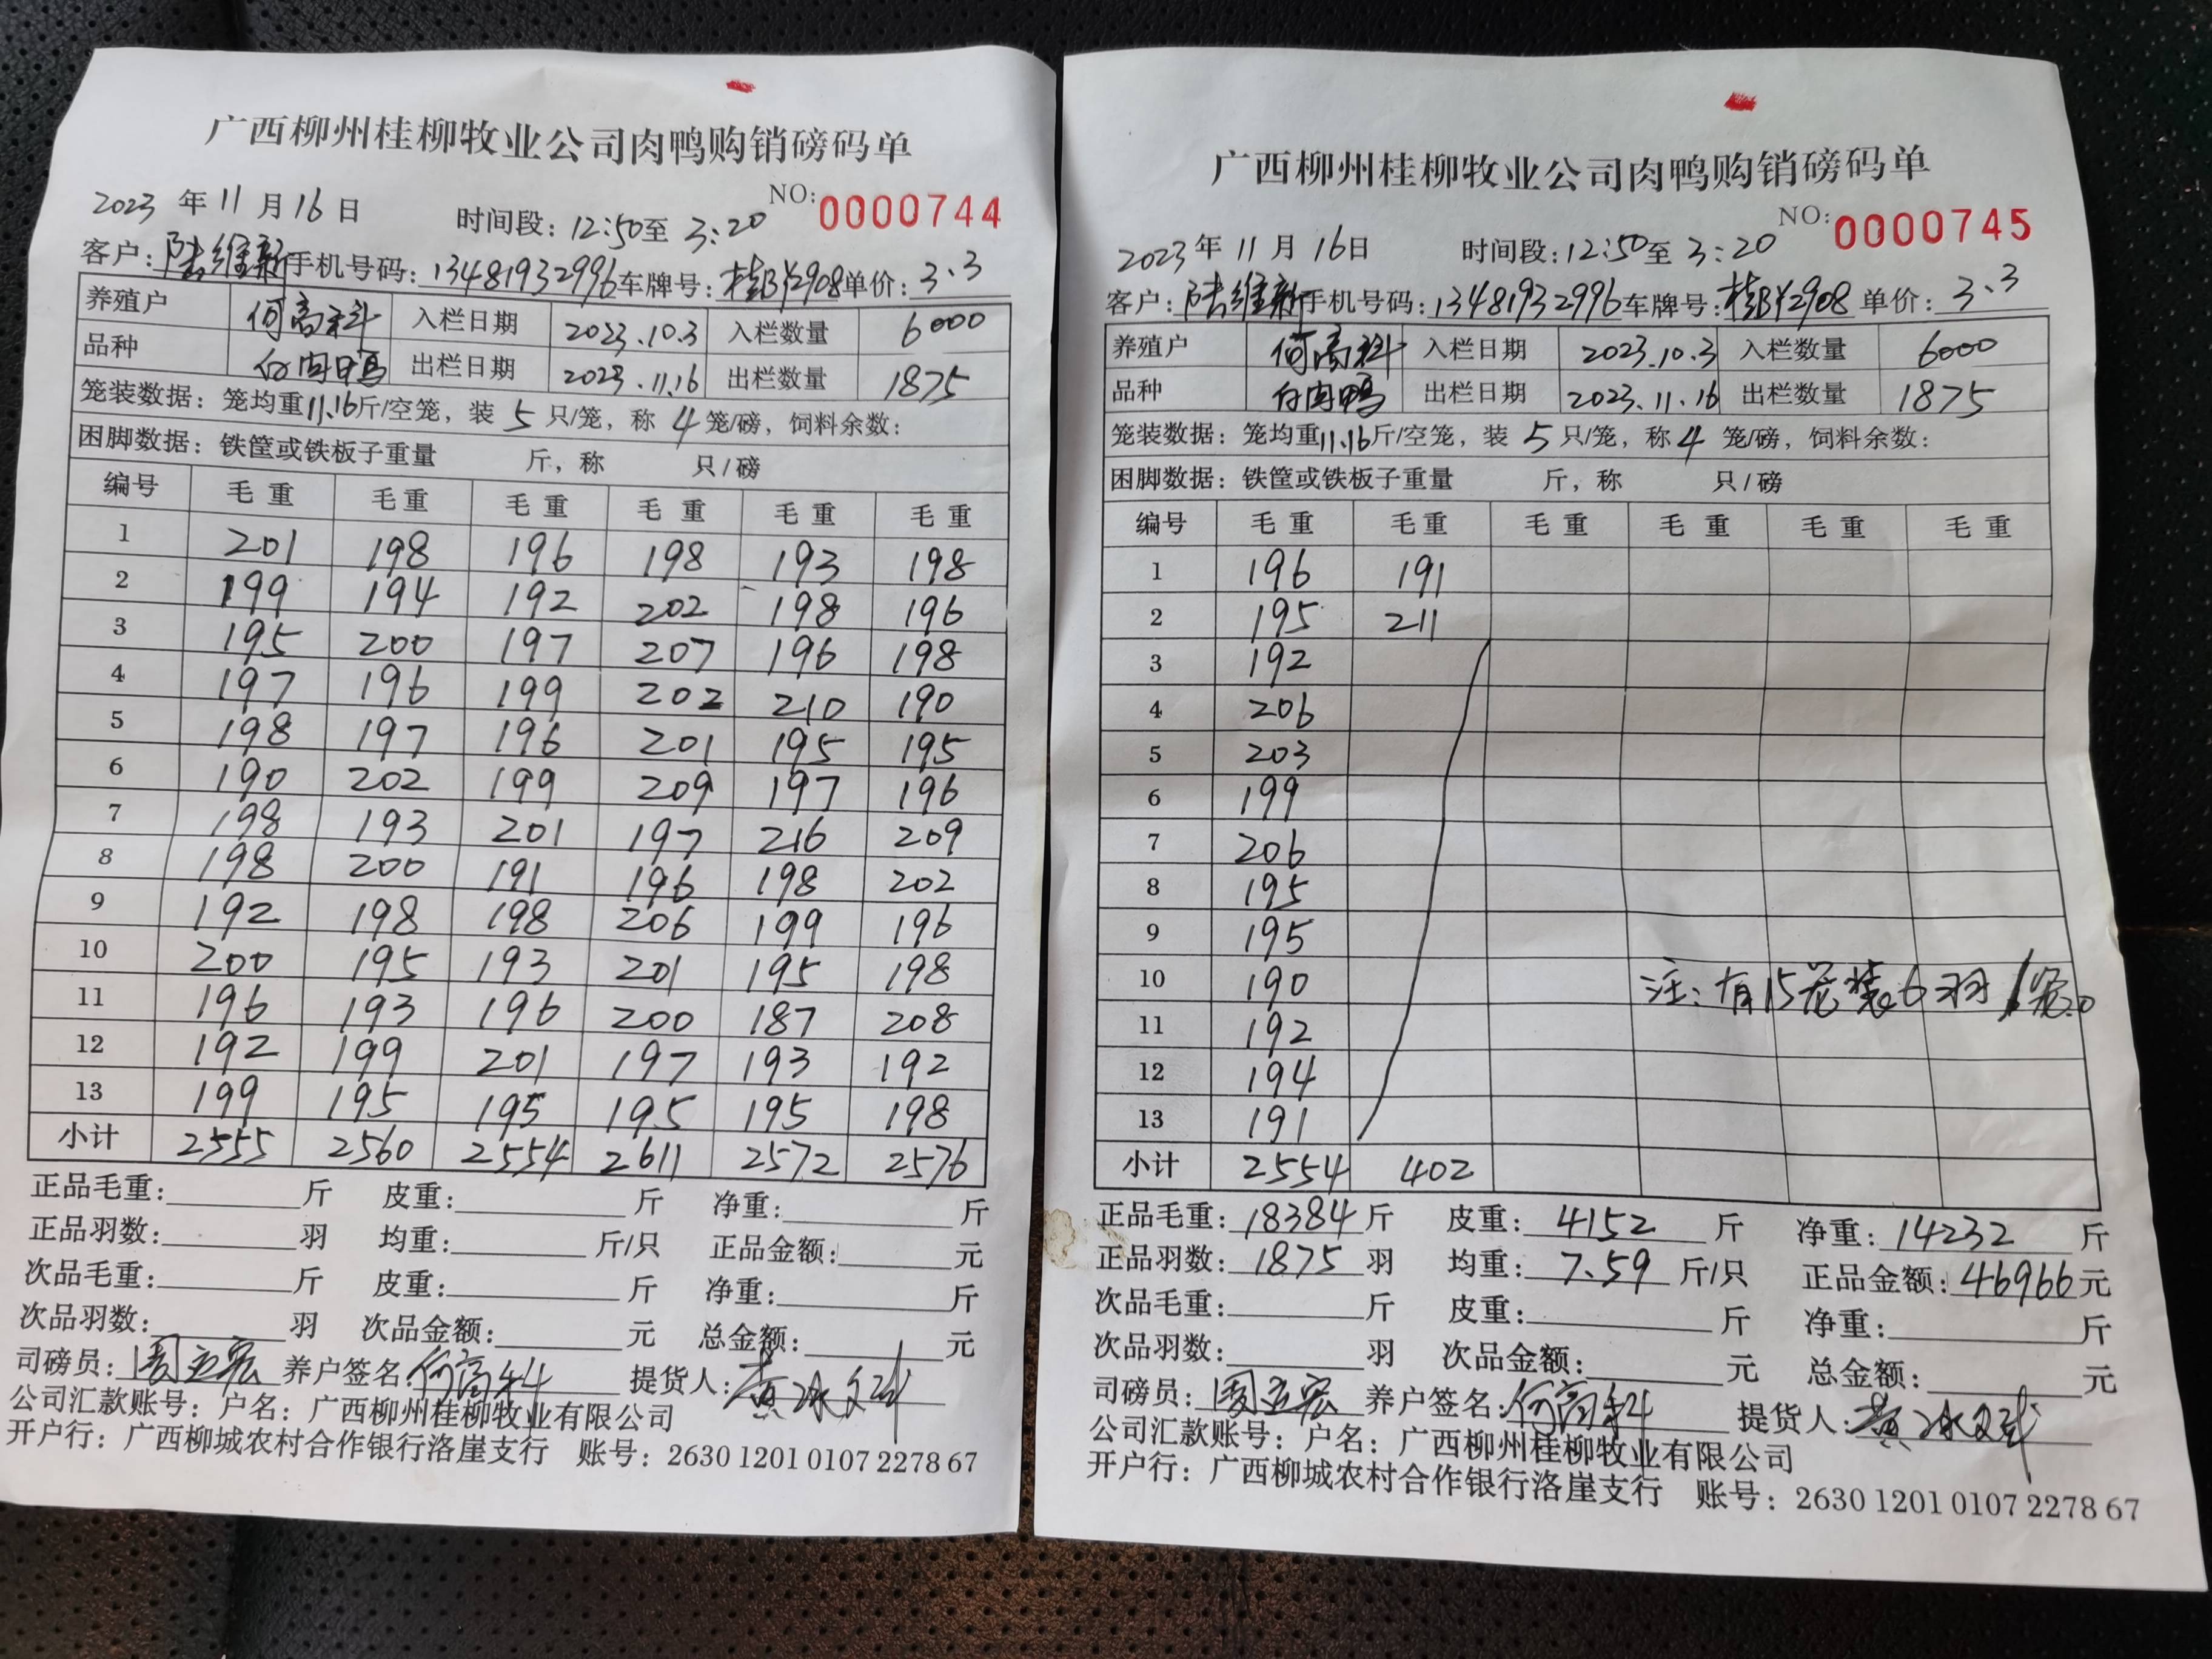 广西柳州桂柳牧业公司肉鸭购销磅码单
NO: 0000744
2023 年 11 月 16 日 时间段: 12:50 至 3:20
客户: 陆维新 手机号码: 13481932996 车牌号: 桂BY2908 单价: 3.3
养殖户 何高科 入栏日期 2023.10.3 入栏数量 6000
品种 白肉鸭 出栏日期 2023.11.16 出栏数量 1875
笼装数据: 笼均重11.16斤/空笼, 装 5 只/笼, 称 4 笼/磅, 饲料余数:
困脚数据: 铁筐或铁板子重量 斤, 称 只/磅
编号 毛重 毛重 毛重 毛重 毛重 毛重
1 201 198 196 198 193 198
2 199 194 192 202 198 196
3 195 200 197 207 196 198
4 197 196 199 202 210 190
5 198 197 196 201 195 195
6 190 202 199 209 197 196
7 198 193 201 197 216 209
8 198 200 191 196 198 202
9 192 198 198 206 199 196
10 200 195 193 201 195 198
11 196 193 196 200 187 208
12 192 199 201 197 193 192
13 199 195 195 195 195 198
小计 2555 2560 2554 2611 2572 2576
正品毛重: 斤 皮重: 斤 净重: 斤
正品羽数: 羽 均重: 斤/只 正品金额: 元
次品毛重: 斤 皮重: 斤 净重: 斤
次品羽数: 羽 次品金额: 元 总金额: 元
司磅员: 周立宏 养户签名: 何高科 提货人: 黄冰
公司汇款账号: 户名: 广西柳州桂柳牧业有限公司
开户行: 广西柳城农村合作银行洛崖支行 账号: 2630 1201 0107 2278 67
广西柳州桂柳牧业公司肉鸭购销磅码单
NO: 0000745
2023 年 11 月 16 日 时间段: 12:50 至 3:20
客户: 陆维新 手机号码: 13481932996 车牌号: 桂BY2908 单价: 3.3
养殖户 何高科 入栏日期 2023.10.3 入栏数量 6000
品种 白肉鸭 出栏日期 2023.11.16 出栏数量 1875
笼装数据: 笼均重11.16斤/空笼, 装 5 只/笼, 称 4 笼/磅, 饲料余数:
困脚数据: 铁筐或铁板子重量 斤, 称 只/磅
编号 毛重 毛重 毛重 毛重 毛重 毛重
1 196 191
2 195 211
3 192
4 206
5 203
6 199
7 206
8 195
9 195
10 190 注: 有15笼装6羽/笼.
11 192
12 194
13 191
小计 2554 402
正品毛重: 18384 斤 皮重: 4152 斤 净重: 14232 斤
正品羽数: 1875 羽 均重: 7.59 斤/只 正品金额: 46966 元
次品毛重: 斤 皮重: 斤 净重: 斤
次品羽数: 羽 次品金额: 元 总金额: 元
司磅员: 周立宏 养户签名: 何高科 提货人: 黄冰
公司汇款账号: 户名: 广西柳州桂柳牧业有限公司
开户行: 广西柳城农村合作银行洛崖支行 账号: 2630 1201 0107 2278 67